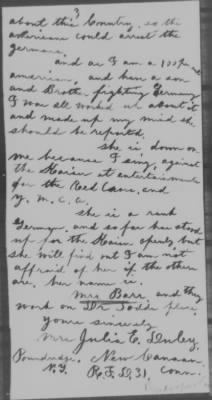 3
about this Country, so the
americans could arrest the
germans.
and as I am a 100% 
american, and have a son
and Brother fighting Germany
I was all worked up about it
and made up my mind she
should be reported.
she is down on
me because I sing, against
the Kaiser at entertainments
for the Red Cross, and
Y. M. C. A.
she is a rank
German, and so far has stood
up for the Kaiser openly, but
she will find out I am not
affraid of her if the others
are, her name is.
Mrs Barr, and they
work on Dr Todds place
yours sincerely
Mrs Julia C.
Poundridge, New Canaan,
N.Y. R.F.D. 31, Conn.